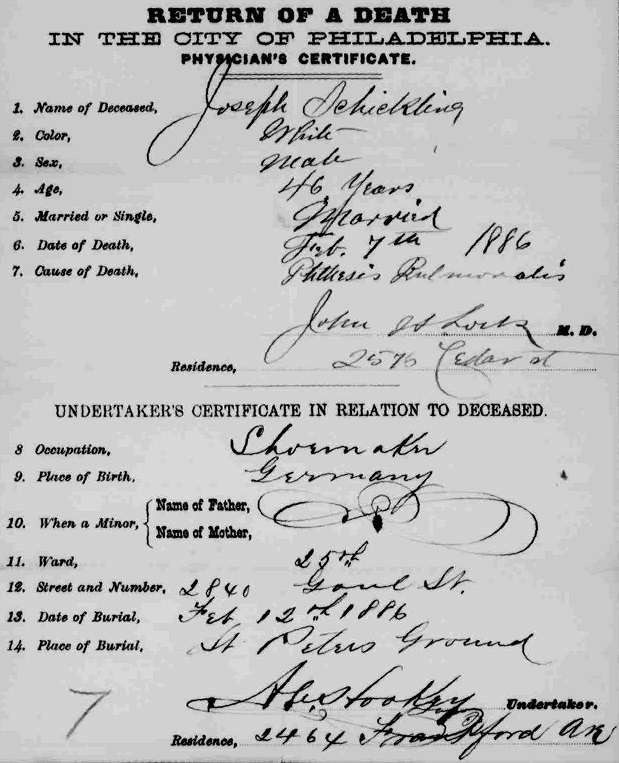 RETURN OF A DEATH
IN THE CITY OF PHILADELPHIA.
PHYSICIAN'S CERTIFICATE.
1. Name of Deceased, Joseph Schickling
2. Color, White
3. Sex, Male
4. Age, 46 Years
5. Married or Single, Married
6. Date of Death, Feb. 7th 1886
7. Cause of Death, Phthesis Pulmonalis
John M. D.
Residence, 2576 Cedar st
UNDERTAKER'S CERTIFICATE IN RELATION TO DECEASED.
8 Occupation, Shoemaker
9. Place of Birth, Germany
10. When a Minor, { Name of Father,
Name of Mother,
11. Ward, 25th
12. Street and Number, 2840 Gaul St.
13. Date of Burial, Feb 12th 1886
14. Place of Burial, St Peters Ground
Hookey Undertaker.
7
Residence, 2464 Frankford Ave